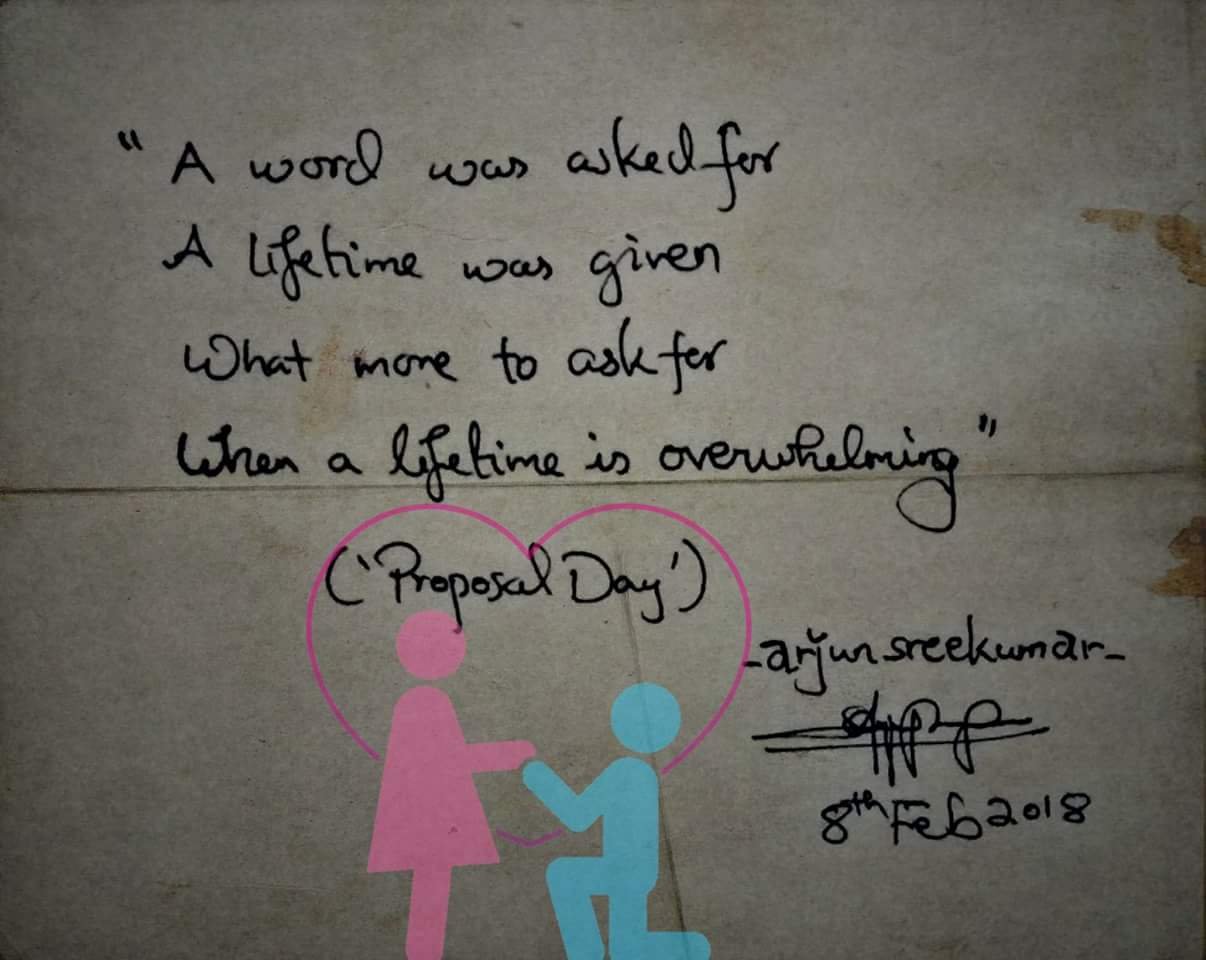 " A word was asked for
A lifetime was given
What more to ask for
When a lifetime is overwhelming"
('Proposal Day')
-arjun sreekumar-
8th Feb 2018